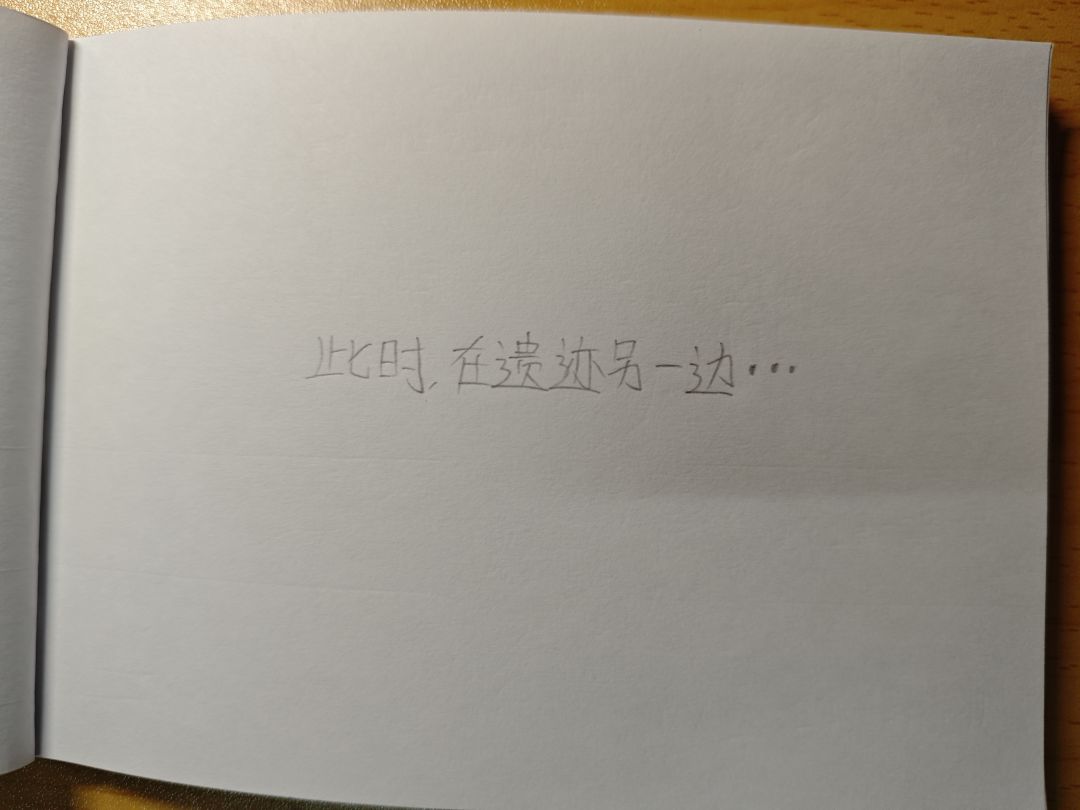 此时,在遗迹另一边…